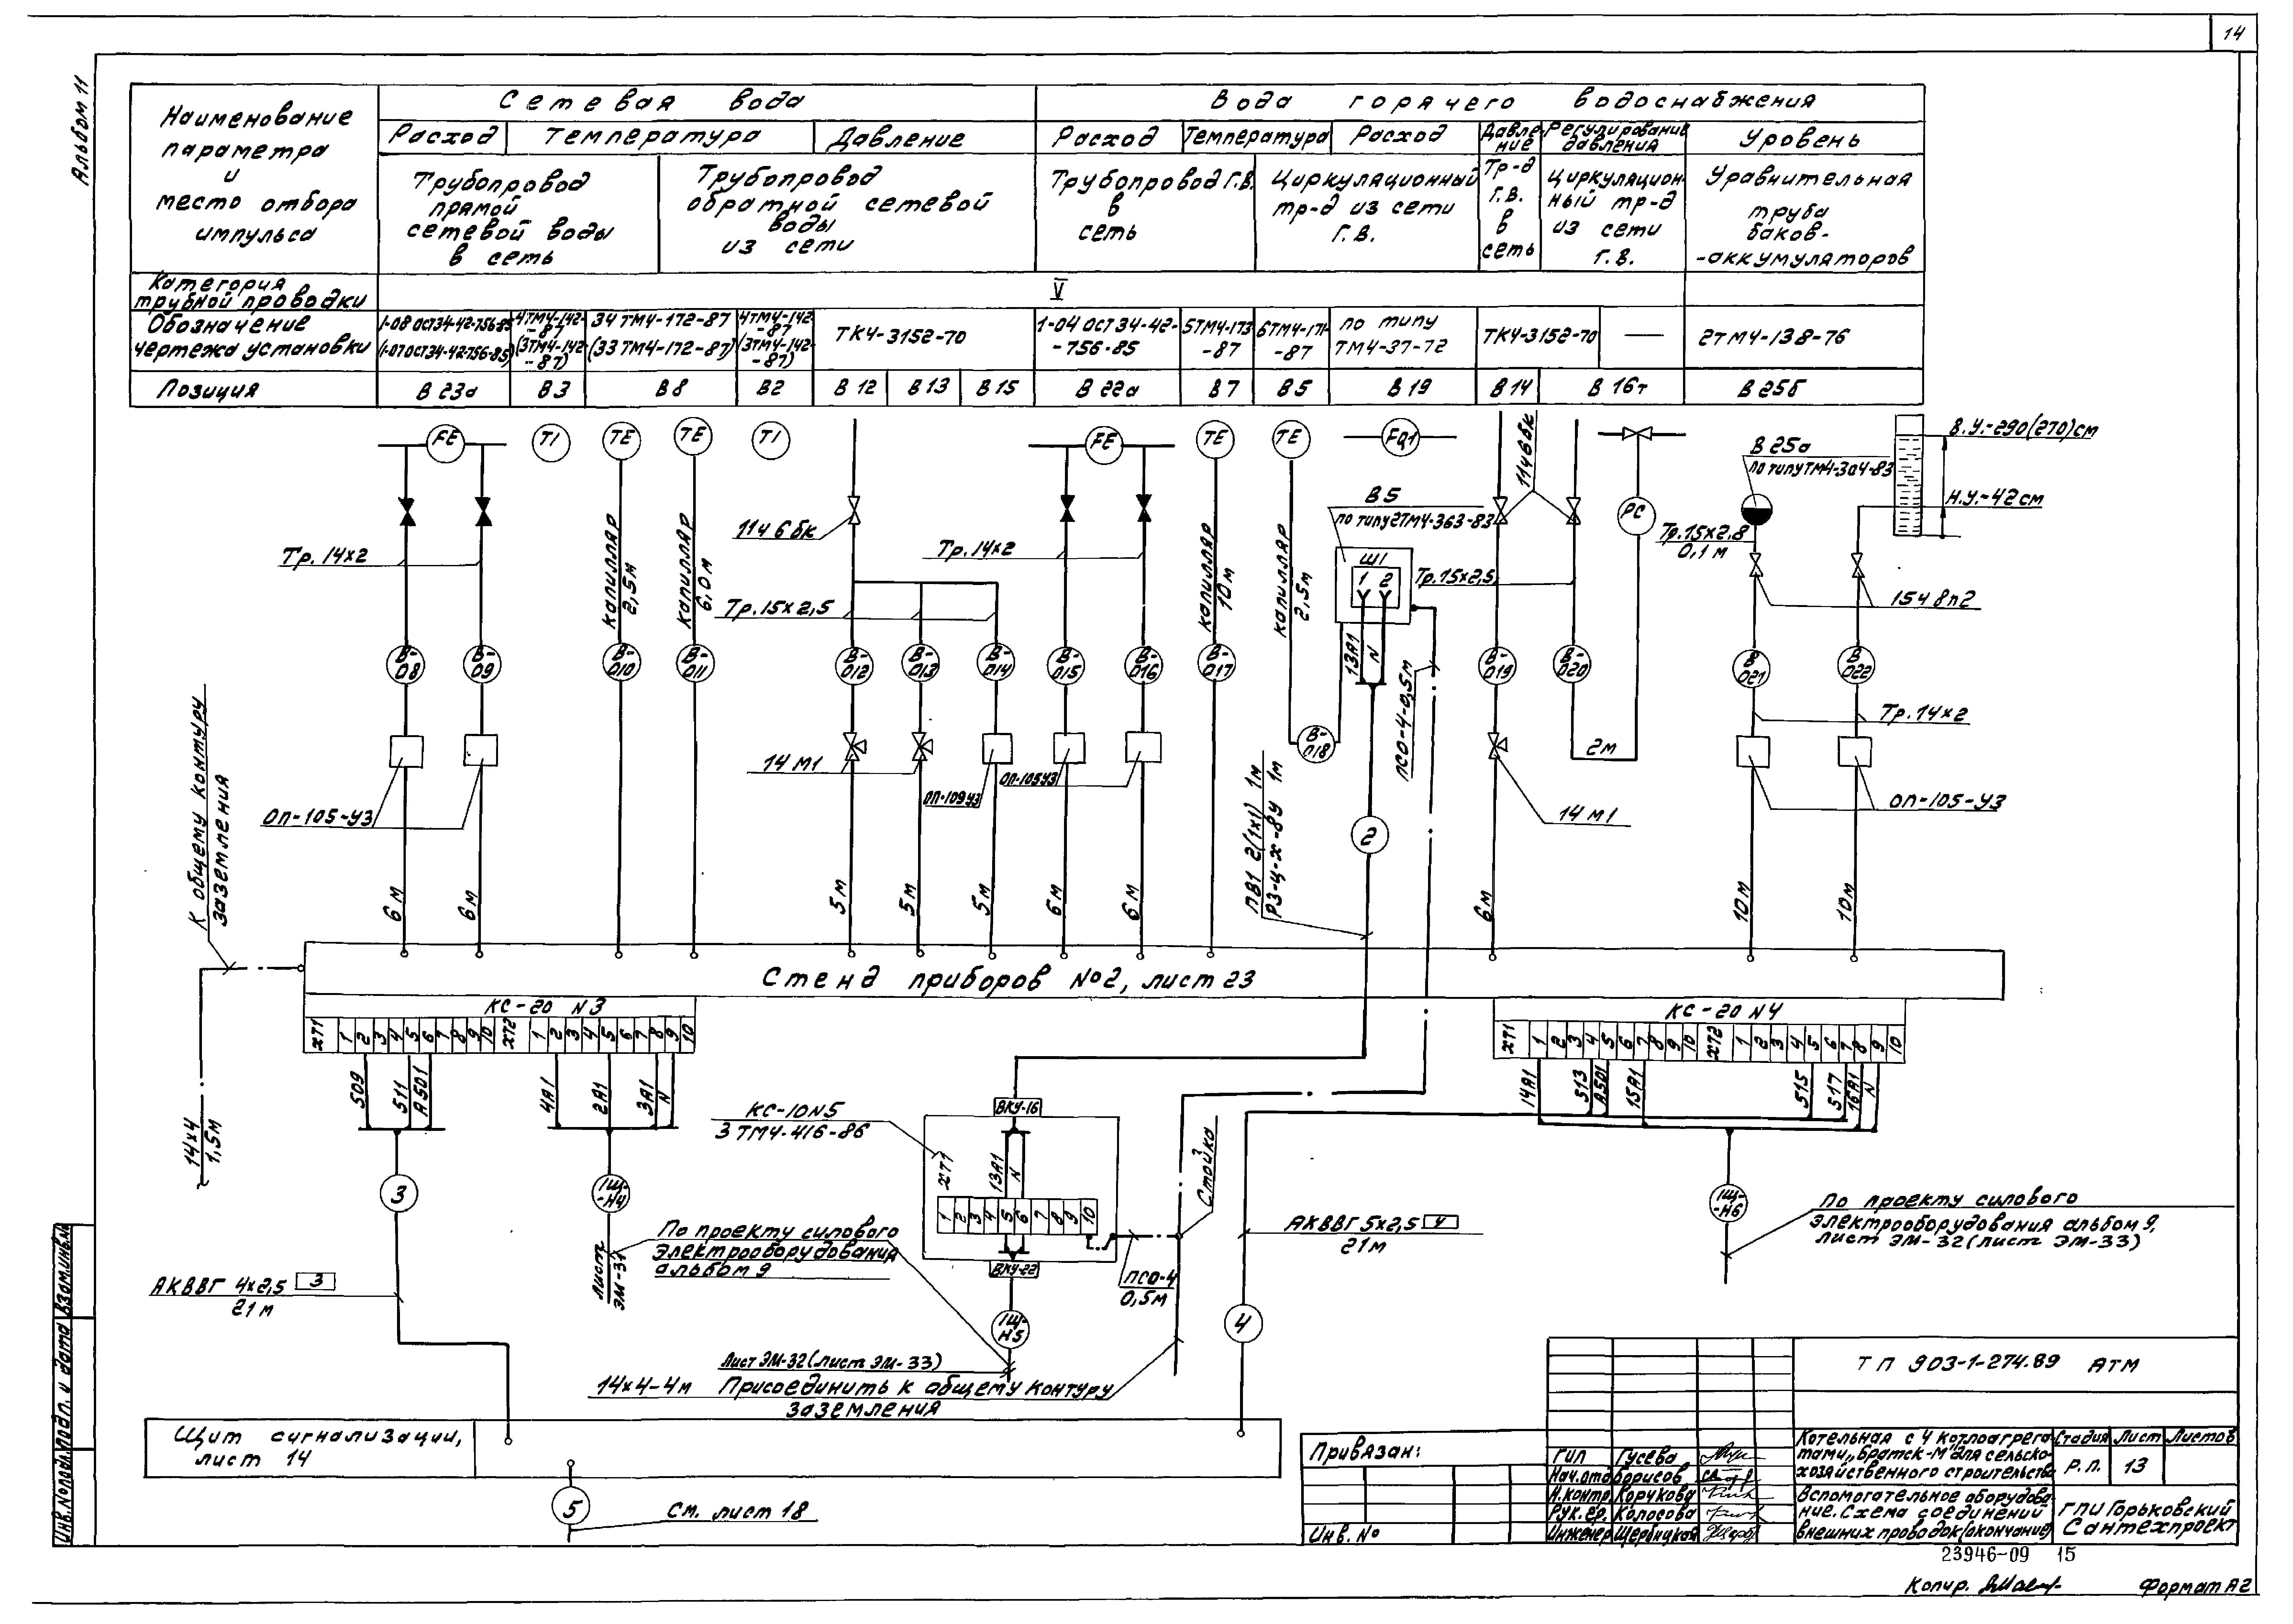 14
Альбом 11
Наименование
параметра
и
место отбора
импульса
Сетевая вода
Вода горячего водоснабжения
Расход
Температура
Давление
Расход
Температура
Расход
Давле-
ние
Регулирование
давления
Уровень
Трубопровод
прямой
сетевой воды
в сеть
Трубопровод
обратной сетевой
воды
из сети
Трубопровод Г.В.
в
сеть
Циркуляционный
тр-д из сети
Г.В.
Тр-д
Г.В.
в
сеть
Циркуляцион-
ный тр-д
из сети
Г.В.
Уравнительная
труба
баков-
-аккумуляторов
Категория
трубной проводки
V
Обозначение
чертежа установки
1-08 ОСТ34-42-756-85
(1-07 ОСТ34-42-756-85)
4ТМ4-142-
-87
(3ТМ4-142-
-87)
34 ТМ4-172-87
(33 ТМ4-172-87)
4ТМ4-142
-87
(3ТМ4-142
-87)
ТК4-3152-70
1-04 ОСТ 34-42-
-756-85
5ТМ4-173
-87
6ТМ4-171-
-87
по типу
ТМ4-37-72
ТК4-3152-70
—
2ТМ4-138-76
Позиция
В 23а
В3
В8
В2
В 12
В 13
В 15
В 22а
В7
В5
В 19
В 14
В 16т
В 25б
FE
TI
TE
TE
TI
FE
TE
TE
FQ1
PC
В 25а
по типу ТМ4-304-83
В.У.-290(270)см
Н.У.-42см
11ч 6 бк
11ч6бк
Тр.14х2
Капилляр
2,5м
Капилляр
6,0м
Тр.15х2,5
Тр.14х2
Капилляр
10м
Капилляр
2,5м
В5
по типу 2ТМ4-363-83
Ш1
1 2
13А1
N
Тр.15х2,5
Тр.15х2,8
0,1м
15ч 8п2
В-
08
В-
09
В-
010
В-
011
В-
012
В-
013
В-
014
В-
015
В-
016
В-
017
В-
018
В-
019
В-
020
В
021
В
022
Тр.14х2
2м
14 М1
ОП-109У3
ОП-105У3
ОП-105-У3
14 М1
ОП-105-У3
ПСО-4-0,5м
ПВ1 2(1х1) 1м
РЗ-Ц-Х-8У 1м
2
К общему контуру
заземления
6м
6м
5м
5м
5м
6м
6м
6м
10м
10м
Стенд приборов №2, лист 23
КС-20 N3
ХТ1 1 2 3 4 5 6 7 8 9 10 ХТ2 1 2 3 4 5 6 7 8 9 10
509
511
А501
4А1
2А1
3А1
N
КС-20 N4
ХТ1 1 2 3 4 5 6 7 8 9 10 ХТ2 1 2 3 4 5 6 7 8 9 10
14А1
513
А501
15А1
515
517
16А1
N
14х4
1,5м
3
1Щ-
-Н4
Лист
ЭМ-31
КС-10N5
3 ТМ4-416-86
ВКУ-16
ХТ1
13А1
N
1 2 3 4 5 6 7 8 9 10
ВКУ-22
1Щ-
Н5
Стойка
ПСО-4
0,5м
По проекту силового
электрооборудования
альбом 9
АКВВГ 5х2,5 4
21м
4
1Щ-
-Н6
По проекту силового
электрооборудования альбом 9,
лист ЭМ-32 (лист ЭМ-33)
АКВВГ 4х2,5 3
21м
Лист ЭМ-32 (лист ЭМ-33)
14х4-4м Присоединить к общему контуру
заземления
Щит сигнализации,
лист 14
5
См. лист 18
Инв.№подл. Подп. и дата Взам.инв.№
Привязан:
Инв. №
ТП 903-1-274.89 АТМ
ГИП Гусева
Нач.отд Борисов
Н.контр. Корчкова
Рук.гр. Колосова
Инженер Щербицкая
Котельная с 4 котлоагрега-
тами „Братск-М" для сельско-
хозяйственного строительства
Стадия Лист Листов
Р.П. 13
Вспомогательное оборудова-
ние. Схема соединений
внешних проводок (окончание)
ГПИ Горьковский
Сантехпроект
23946-09 15
Копир.
Формат А2